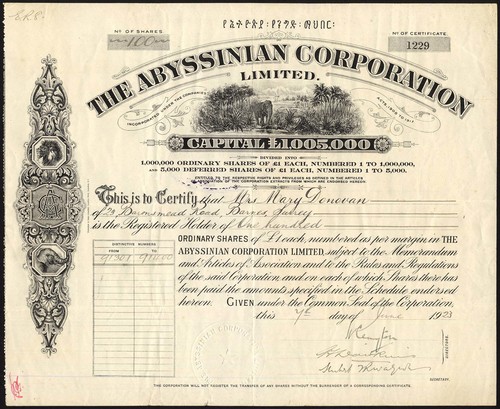 No OF SHARES
100
No OF CERTIFICATE.
1229
THE ABYSSINIAN CORPORATION
LIMITED.
INCORPORATED UNDER THE COMPANIES
ACTS, 1908 TO 1917.
CAPITAL £1,005,000
DIVIDED INTO
1,000,000 ORDINARY SHARES OF £1 EACH, NUMBERED 1 TO 1,000,000,
AND 5,000 DEFERRED SHARES OF £1 EACH, NUMBERED 1 TO 5,000.
ENTITLED TO THE RESPECTIVE RIGHTS AND PRIVILEGES AS DEFINED IN THE ARTICLES
OF ASSOCIATION OF THE CORPORATION EXTRACTS FROM WHICH ARE ENDORSED HEREON
This is to Certify that Mrs Mary Donovan
of Road, Barnes, Surrey
is the Registered Holder of One hundred
DISTINCTIVE NUMBERS
FROM TO
ORDINARY SHARES of £1 each, numbered as per margin in THE
ABYSSINIAN CORPORATION LIMITED, subject to the Memorandum
and Articles of Association and to the Rules and Regulations
of the said Corporation and on each of which Shares there has
been paid the amounts specified in the Schedule endorsed
hereon. GIVEN under the Common Seal of the Corporation,
this 7th day of June 1923
DIRECTORS.
SECRETARY.
THE CORPORATION WILL NOT REGISTER THE TRANSFER OF ANY SHARES WITHOUT THE SURRENDER OF A CORRESPONDING CERTIFICATE.